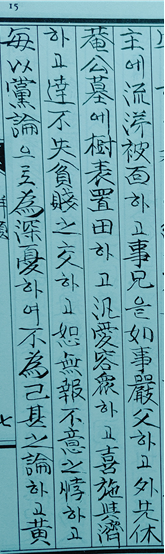 15
主에流涕被面하고事兄을如事嚴父하고外休
菴公墓에樹表置田하고汎愛容衆하고喜施濟
하고達不失貧賤之交하고恕無報不意之悖하고
每以黨論으로為深憂하여不為已甚之論하고黃
七